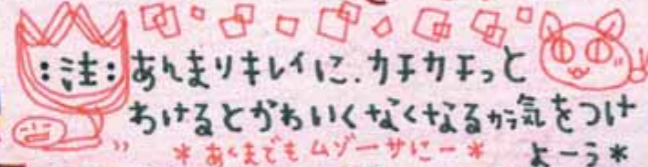 :注: あんまりキレイに、カチカチっと
わけるとかわいくなくなるから気をつけ
よーう*
*あくまでもムゾーサにー*